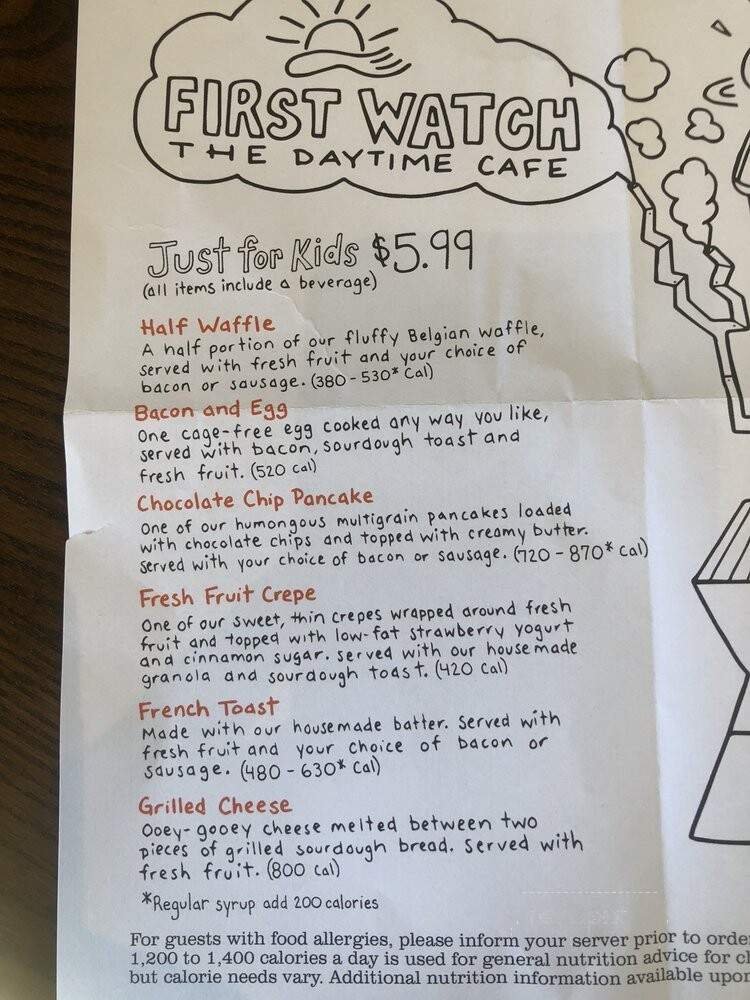 FIRST WATCH
THE DAYTIME CAFE
Just for Kids $5.99
(all items include a beverage)
Half Waffle
A half portion of our fluffy Belgian waffle,
served with fresh fruit and your choice of
bacon or sausage. (380-530* Cal)
Bacon and Egg
One cage-free egg cooked any way you like,
served with bacon, sourdough toast and
fresh fruit. (520 Cal)
Chocolate Chip Pancake
One of our humongous multigrain pancakes loaded
with chocolate chips and topped with creamy butter.
Served with your choice of bacon or sausage. (720-870* Cal)
Fresh Fruit Crepe
One of our sweet, thin crepes wrapped around fresh
fruit and topped with low-fat strawberry yogurt
and cinnamon sugar. Served with our housemade
granola and sourdough toast. (420 Cal)
French Toast
Made with our housemade batter. Served with
fresh fruit and your choice of bacon or
sausage. (480-630* Cal)
Grilled Cheese
Ooey-gooey cheese melted between two
pieces of grilled sourdough bread. Served with
fresh fruit. (800 Cal)
*Regular syrup add 200 calories
For guests with food allergies, please inform your server prior to orde
1,200 to 1,400 calories a day is used for general nutrition advice for c
but calorie needs vary. Additional nutrition information available upo